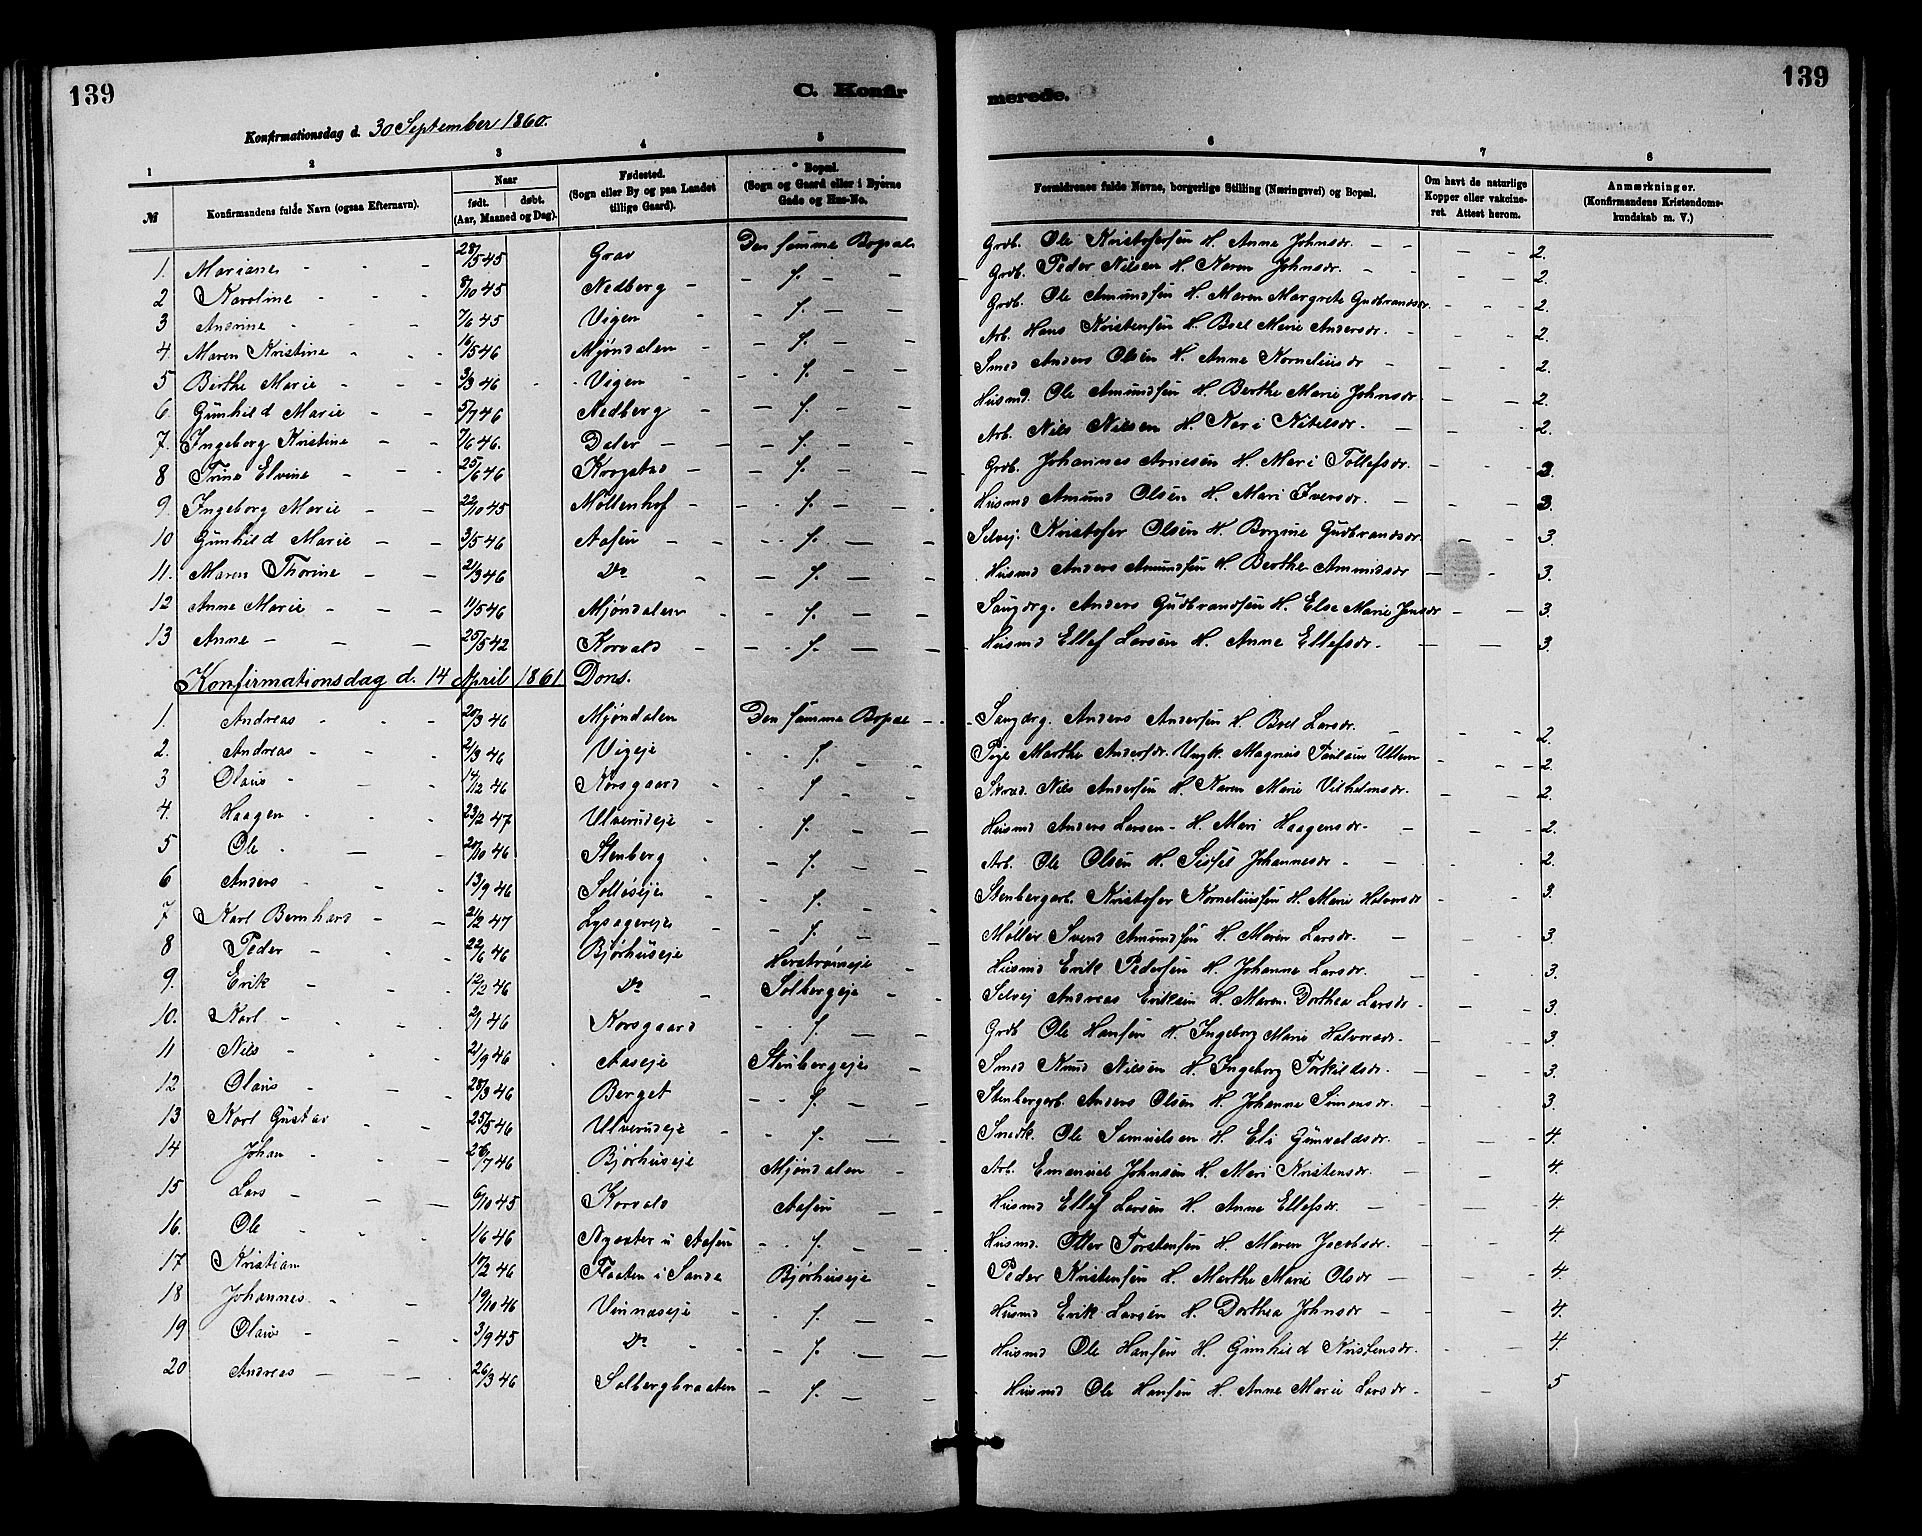 139
C. Konfir
merede.
139
Konfirmationsdag d. 30 September 1860.
1 2 3 4 5 6 7 8
№ Konfirmandens fulde Navn (ogsaa Efternavn). Naar født. døbt. (Aar, Maaned og Dag). Fødested. (Sogn eller By og paa Landet tillige Gaard). Bopæl. (Sogn og Gaard eller i Byerne Gade og Hus-No. Forældrenes fulde Navne, borgerlige Stilling (Næringsvei) og Bopæl. Om havt de naturlige Kopper eller vakcineret. Attest herom. Anmærkninger. (Konfirmandens Kristendomskundskab m. V.)
1. Mariane 28/5 45 Grav Den samme Bopæl Grdb. Ole Kristofersen H. Anne Johnsdr. 2.
2 Karoline 8/10 45 Nedberg f. Grdb. Peder Nilsen H. Karen Johnsdr. 2.
3 Andrine 7/6 45 Vigen f. Grdb. Ole Amundsen H. Maren Margrete Gudbrandsdr. 2.
4. Maren Kristine 16/5 46 Mjøndalen f. Arb. Hans Kristensen H. Boel Marie Andersdr. 2.
5 Birthe Marie 3/3 46 Vigen f. Smed Anders Olsen H. Anne Korneliusdr 2.
6. Gunhild Marie 5/7 46 Nedberg f. Husmd. Ole Amundsen H. Berthe Marie Johnsdr. 2.
7. Ingeborg Kristine 7/6 46. Daler f. Arb. Nils Nilsen H. Kari Nilsdr. 2.
8 Trine Elvine 25/6 46 Krogstad f. Grdb. Johannes Arnesen H. Mari Tollefsdr. 3.
9. Ingeborg Marie 22/10 45 Møllenhof f. Husmd Amund Olsen H. Mari Iversdr. 3.
10 Gunhild Marie 3/5 46 Aasen f. Selvej. Kristofer Olsen H. Borgine Gudbrandsdr. 3.
11. Maren Thorine 21/3 46 Do f. Husmd Anders Amundsen H. Berthe Amundsdr 3.
12 Anne Marie 11/5 46 Mjøndalen f. Saugdrg. Anders Gudbrandsen H. Else Marie Jensdr 3.
13 Anne 25/5 42 Korvald f. Husmd Ellef Larsen H. Anne Ellefsdr. 3.
Konfirmationsdag d. 14 April 1861 Dons.
1. Andreas 20/3 46 Mjøndalen Den samme Bopæl Saugdrg. Anders Andersen H. Boel Larsdr. 2.
2. Andreas 21/3 46 Vigeje f. Pige Marthe Andersdr. Ungk. Magnus Paulsen Ullern 2.
3 Olaus 14/12 46 Korsgaard f. Skrad. Nils Andersen H. Karen Marie Vilhelmsdr. 2.
4. Haagen 23/2 47 Ulverudeje f. Husmd Anders Larsen H. Mari Haagensdr. 2.
5 Ole 20/10 46 Stenberg f. Arb. Ole Olsen H. Sissel Johannesdr. 2.
6 Anders 13/9 46 Solløseje f. Stenbergarb. Kristofer Korneliussen H. Marie Halvorsdr 3.
7 Karl Bernhard 21/2 47 Lysagereje f. Møller Svend Amundsen H. Maren Larsdr. 3.
8 Peder 22/6 46 Bjørhuseje Herstrømeje Husmd Erik Pedersen H. Johanne Larsdr. 3.
9. Erik 12/2 46 Do Solbergeje Selvej Andreas Eriksen H. Maren Dorthea Larsdr. 3.
10. Karl 2/1 46 Korsgaard f. Grdb Ole Hansen H. Ingeborg Marie Halvorsdr. 3.
11 Nils 21/9 46 Aaseje Stenbergeje Smed Knud Nilsen H. Ingeborg Torkildsdr. 3.
12 Olaus 28/3 46 Berget f. Stenbergarb. Anders Olsen H. Johanne Simensdr. 3.
13 Karl Gustav 25/5 46 Ulverudeje f. Snedk. Ole Samuelsen H. Eli Gunvaldsdr. 4.
14 Johan 26/7 46 Bjørhuseje Mjøndalen Arb. Emanuel Johnsen H. Mari Kristensdr. 4.
15 Lars 6/10 45 Korvald Aasen Husmd Ellef Larsen H. Anne Ellefsdr. 4.
16. Ole 1/6 46 Nysæter u Aasen f. Husmd. Otter Torstensen H. Maren Jacobsdr. 4.
17 Kristian 10/2 46 Flaaten i Sande Bjørhuseje Peder Kristensen H. Marthe Marie Olsdr 4.
18 Johannes 19/10 46 Vinnaseje f. Husmd Erik Larsen H. Dorthea Johnsdr 4.
19 Olaus 3/9 45 Do f. Husmd Ole Hansen H Gunhild Kristensdr. 4.
20 Andreas 26/3 46 Solbergbraaten f. Husmd Ole Hansen H. Anne Marie Larsdr. 5